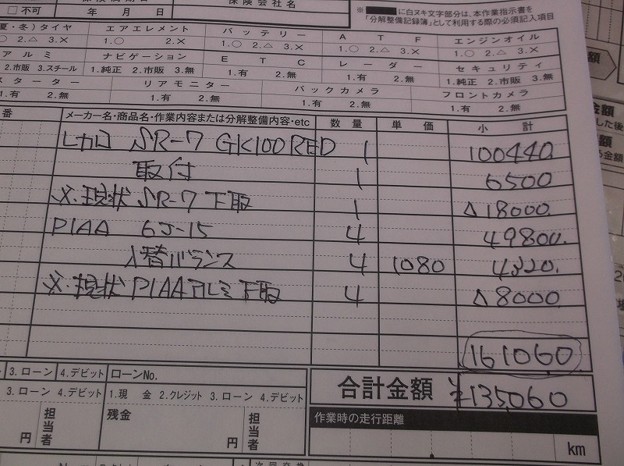 □不可 年 月 日 保険会社名
に白ヌキ文字部分は、本作業指示書を
「分解整備記録簿」として利用する際の必須記入項目
夏・冬）タイヤ エアエレメント バッテリー ATF エンジンオイル
1.○ 2.△ 3.× 1.○ 2.× 1.○ 2.△ 3.× 1.○ 2.△ 3.× 1.○ 2.△ 3.×
アルミ ナビゲーション ETC レーダー セキュリティ
2.市販 3.スチール 1.純正 2.市販 3.無 1.有 2.無 1.有 2.無 1.純正 2.市販 3.無
スターター リアモニター バックカメラ フロントカメラ
1.有 2.無 1.有 2.無 1.有 2.無 1.有 2.無
番 メーカー名・商品名・作業内容または分解整備内容・etc 数量 単価 小計
レカロ SR-7 GK100 RED 1 100440
取付 1 6500
※現状 SR-7 下取 1 △18000.
PIAA 6J-15 4 49800.
入替バランス 4 1080 4320.
※現状 PIAAアルミ下取 4 △8000
161060
3.ローン 4.デビット ローンNo. 合計金額 ¥135,060
3.ローン 4.デビット 1.現金 2.クレジット 3.ローン 4.デビット 作業時の走行距離
円 担当者 残金 円 担当者 km